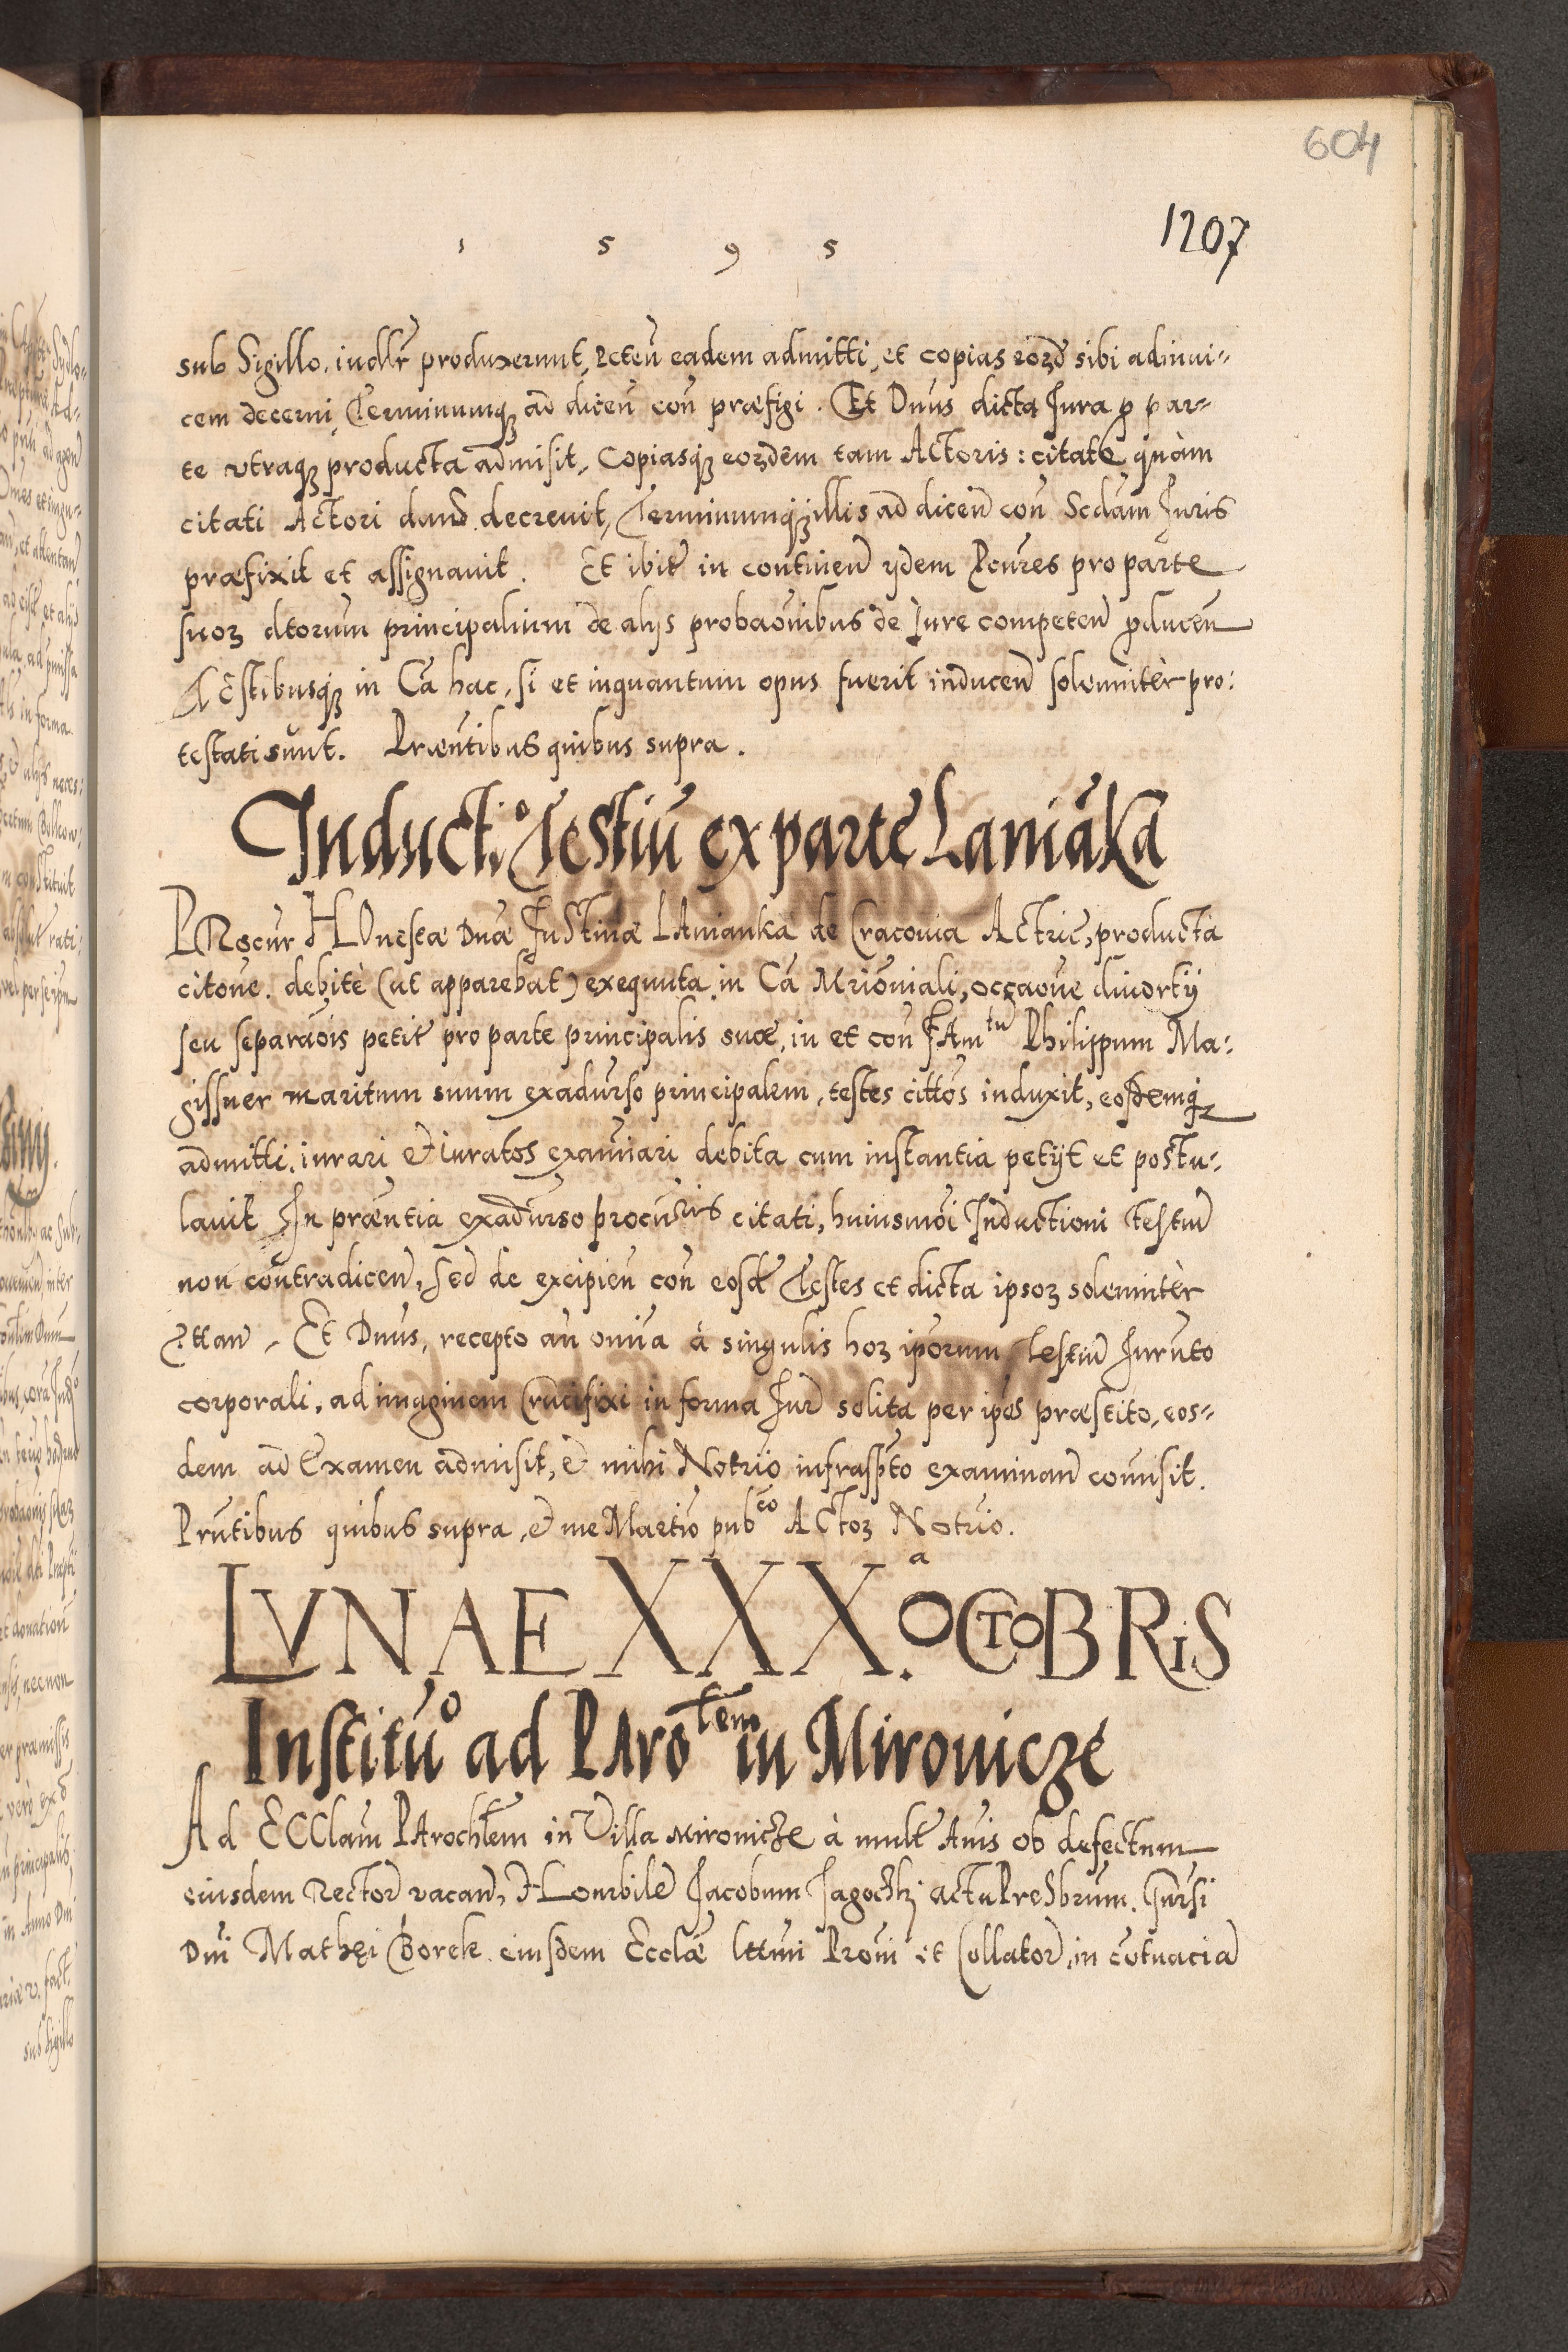 604
1207
1 5 9 5
sub Sigillo. iudlr produxerunt, pcteñ eadem admitti, et copias eorzd sibi adinui-
cem decerni, Terminumqz ad diceñ coñ præfigi. Et Dnus dicta Iura p par-
te vtraqz producta admisit, Copiasqz eorzdem tam Actoris: citatę quàm
citati Actori dand decreuit, Terminumqz illis ad diceñ coñ Scdam Iuris
præfixit et assignauit. Et ibit in contineñ ijdem Pcures pro parte
suorz dtorum principalium de alijs probaõnibus de Iure competeñ pduceñ
Testibusqz in Ca hac, si et inquantum opus fuerit induceñ solemnitèr pro:
testati sunt. Præntibus quibus supra.
Inducti° Testiũ ex parte Laniãka
PRocur HOnestæ Dnæ Justinæ LAnianka de Cracouia Actric, producta
citõne. debitè (ut apparebat) exequuta in Cã Mriõniali, occaõne diuortij
seu separaõis petit pro parte principalis suæ, in et coñ FAmtũ Philippum Ma:
gissner maritum suum exadurso principalem, testes cittos induxit, eosdemqz
admitti. iurari et iuratos examinari debita cum instantia petijt et postu:
lauit In præntia exadurso procuris citati, huiusmoi Inductioni testiũ
non contradiceñ, sed de excipieñ coñ eosd Testes et dicta ipsorz solemnitèr
pttañ. Et Dnus, recepto añ omnia à singulis horz ipsorum testiũ Iurnto
corporali, ad imaginem Crucifixi in forma Iur solita per ipsos præstito, eos-
dem ad Examen admisit, et mihi Notrio infraspto examinañ comisit.
Prntibus quibus supra, et me Martio pubco Actorz Notrio.
LVNAE XXX.a OCTOBRIS
Institũo ad PAroTem in Mironicze
Ad ECClam PArochlem in Villa Mironicze à mult Anis ob defectum
eiusdem Rector vacañ, HOnrbilem Jacobum Jagoczkj actu Presbrum. Gnrsi
Dni Mathęi Borek eiusdem Ecclæ lttmi Proni et Collator, in cõtuacia